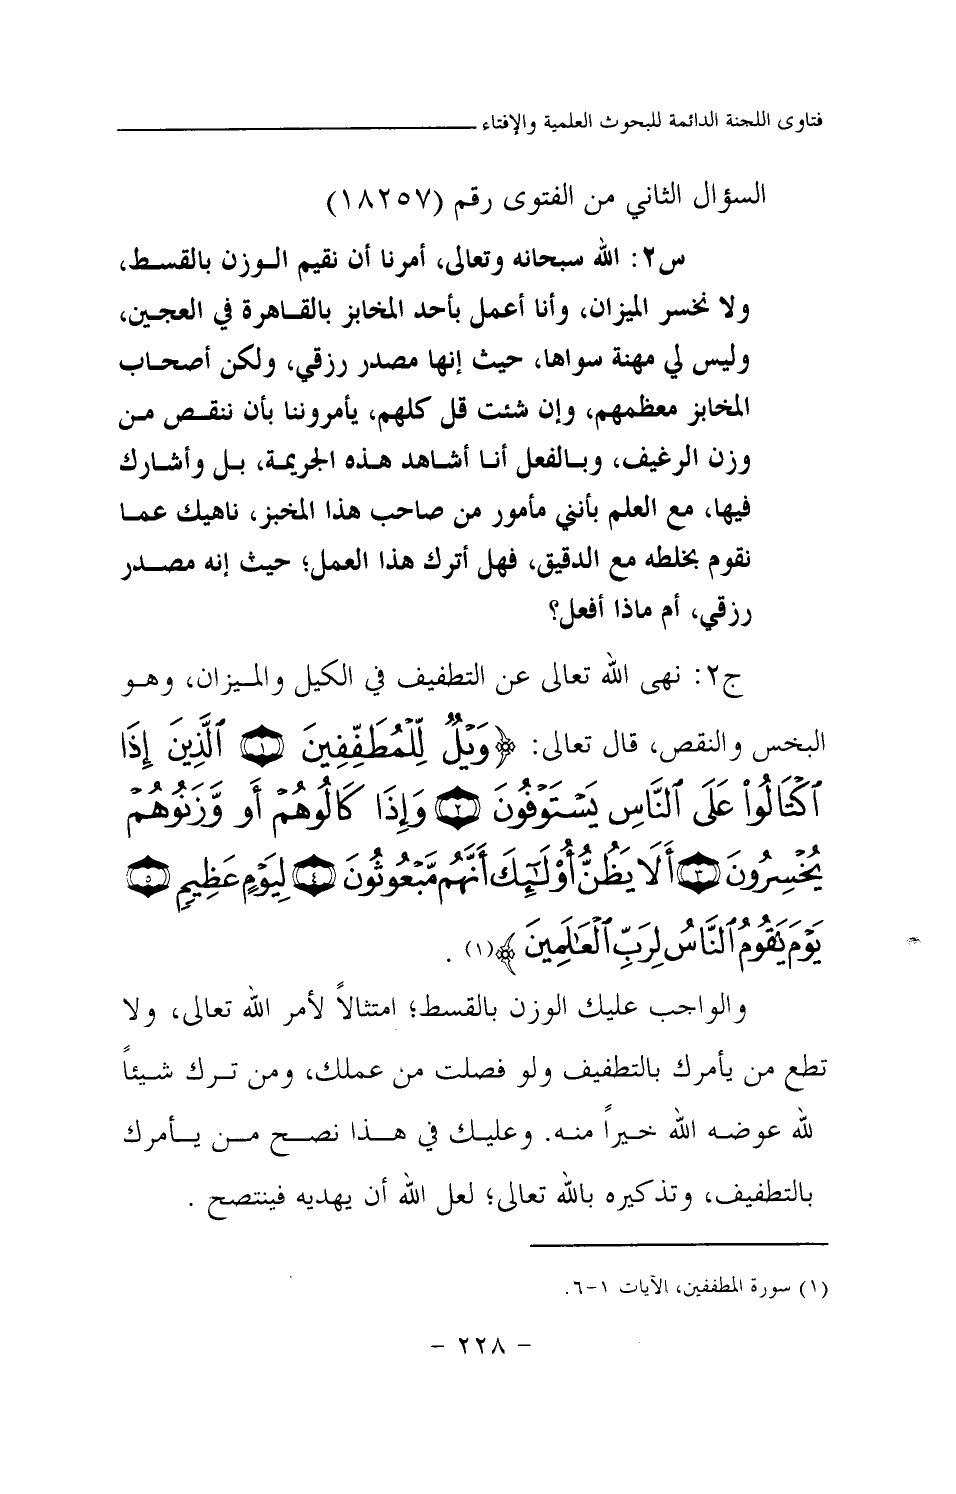 فتاوى اللجنة الدائمة للبحوث العلمية والإفتاء
السؤال الثاني من الفتوى رقم (١٨٢٥٧)
س٢: الله سبحانه وتعالى، أمرنا أن نقيم الوزن بالقسط،
ولا نخسر الميزان، وأنا أعمل بأحد المخابز بالقاهرة في العجين،
وليس لي مهنة سواها، حيث إنها مصدر رزقي، ولكن أصحاب
المخابز معظمهم، وإن شئت قل كلهم، يأمروننا بأن ننقص من
وزن الرغيف، وبالفعل أنا أشاهد هذه الجريمة، بل وأشارك
فيها، مع العلم بأنني مأمور من صاحب هذا المخبز، ناهيك عما
نقوم بخلطه مع الدقيق، فهل أترك هذا العمل؛ حيث إنه مصدر
رزقي، أم ماذا أفعل؟
ج٢: نهى الله تعالى عن التطفيف في الكيل والميزان، وهو
البخس والنقص، قال تعالى: ﴿وَيْلٌ لِّلْمُطَفِّفِينَ ۝١ ٱلَّذِينَ إِذَا
ٱكْتَالُوا۟ عَلَى ٱلنَّاسِ يَسْتَوْفُونَ ۝٢ وَإِذَا كَالُوهُمْ أَو وَّزَنُوهُمْ
يُخْسِرُونَ ۝٣ أَلَا يَظُنُّ أُو۟لَٰٓئِكَ أَنَّهُم مَّبْعُوثُونَ ۝٤ لِيَوْمٍ عَظِيمٍ ۝٥
يَوْمَ يَقُومُ ٱلنَّاسُ لِرَبِّ ٱلْعَٰلَمِينَ﴾(١) .
والواجب عليك الوزن بالقسط؛ امتثالاً لأمر الله تعالى، ولا
تطع من يأمرك بالتطفيف ولو فصلت من عملك، ومن ترك شيئاً
لله عوضه الله خيراً منه. وعليك في هذا نصح من يأمرك
بالتطفيف، وتذكيره بالله تعالى؛ لعل الله أن يهديه فينتصح .
(١) سورة المطففين، الآيات ١-٦.
- ٢٢٨ -